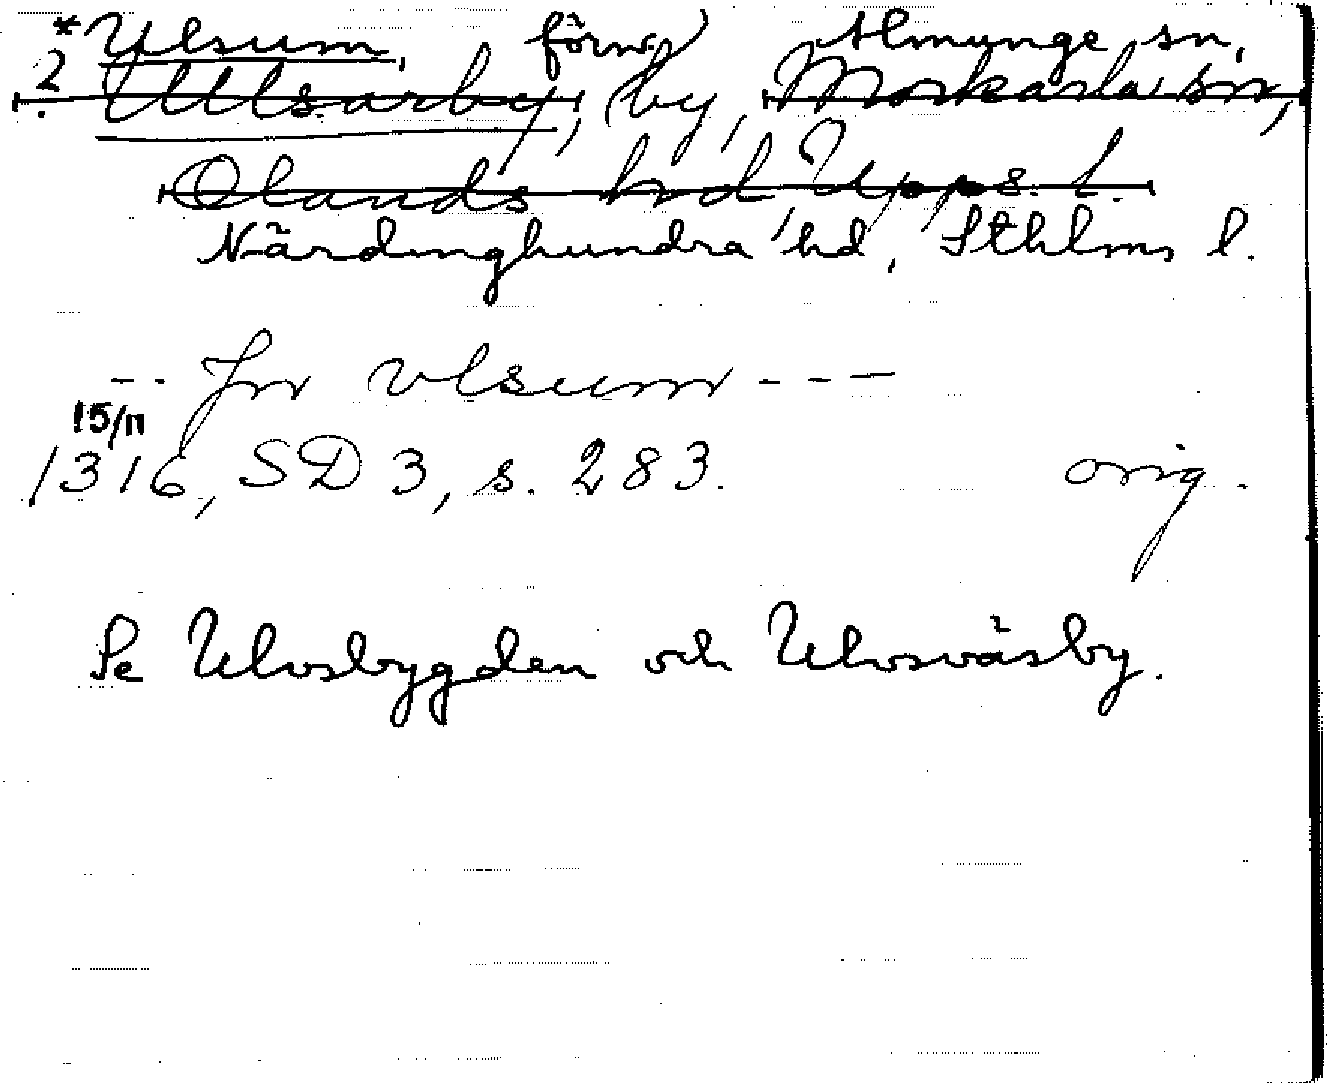 *Ulsum, förw. Almunge sn,
? Ullsarby, by, Morkarla sn,
Olands hd Upps. l.
Närdinghundra hd, Sthlms l.
-- Jnr vlsum ---
15/11
1316, SD 3, s. 283. orig.
Se Ulvsbygden och Ulvsväsby.